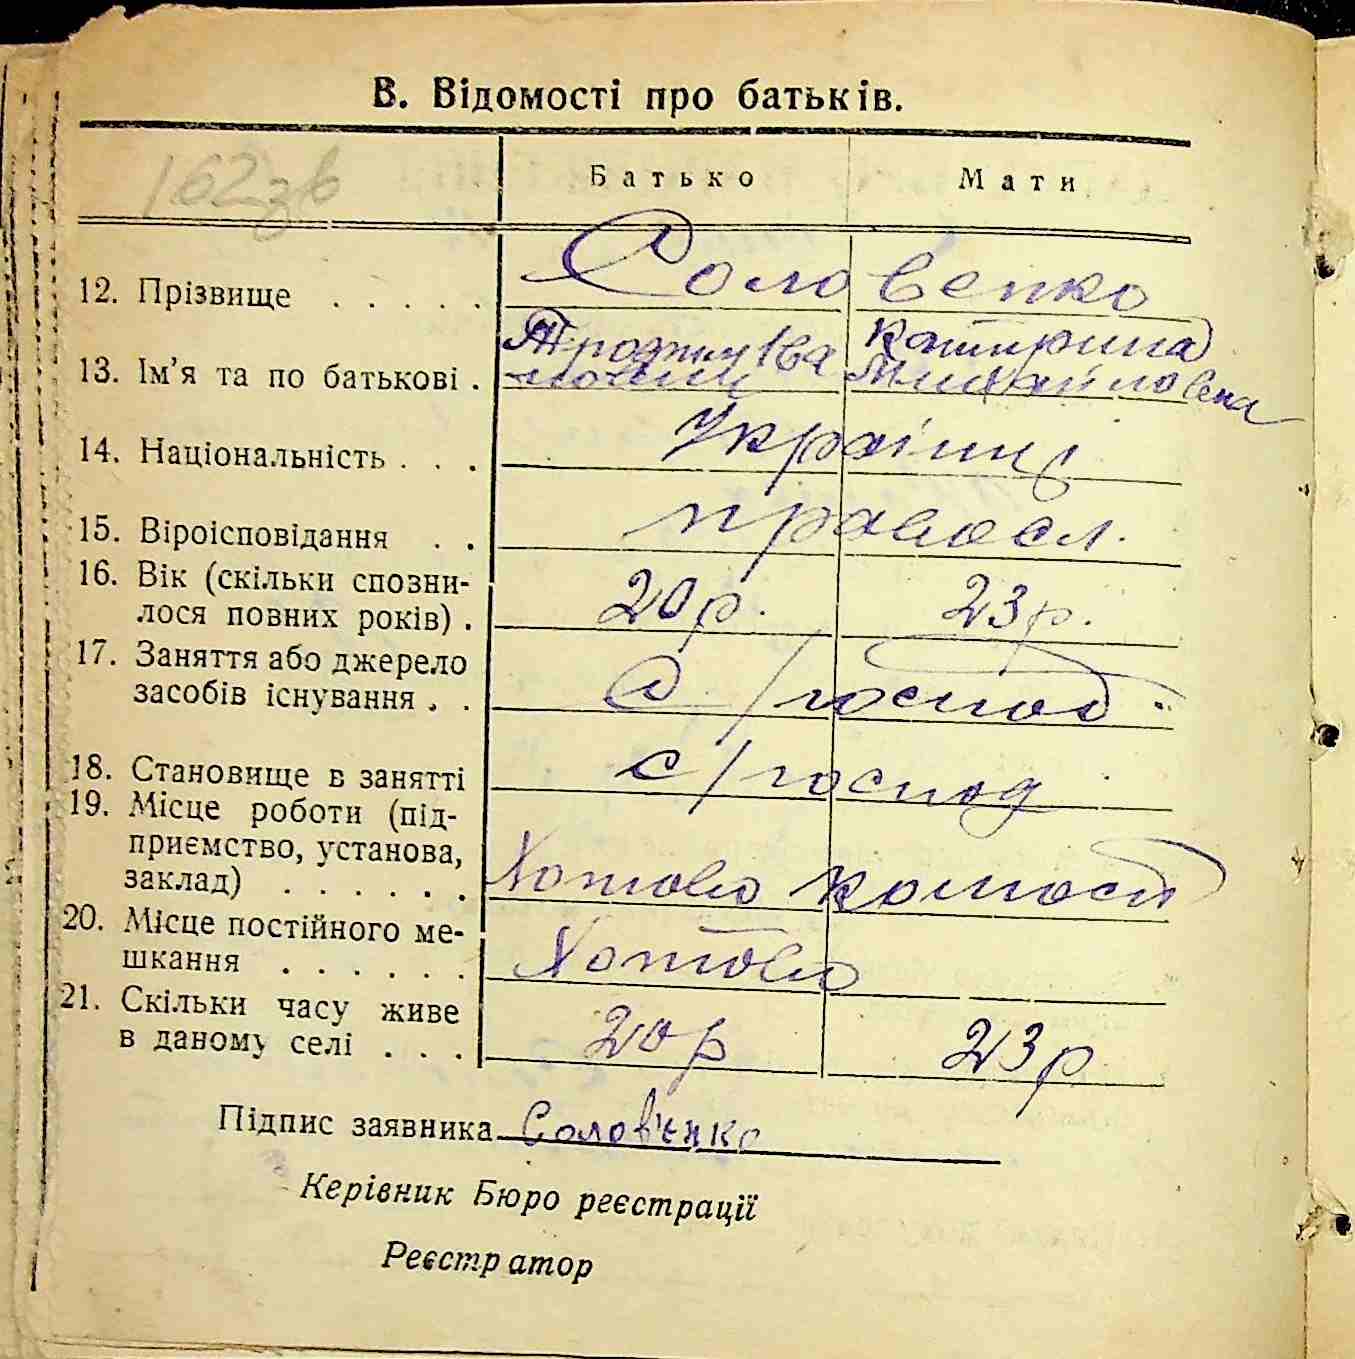 В. Відомості про батьків.
162зв
Батько Мати
12. Прізвище . . . . . Соловенко
13. Ім'я та по батькові . Катирина Михайловена
14. Національність . . . Україинці
15. Віроісповідання . . правосл.
16. Вік (скільки спозни-
лося повних років) . 20 р. 23 р.
17. Заняття або джерело
засобів існування . . С/господ.
18. Становище в занятті с/господ
19. Місце роботи (під-
приємство, установа,
заклад) . . . . . . Хотово
20. Місце постійного ме-
шкання . . . . . . Хотово
21. Скільки часу живе
в даному селі . . . 20 р 23 р
Підпис заявника Солов'єнко
Керівник Бюро реєстрації
Реєстратор